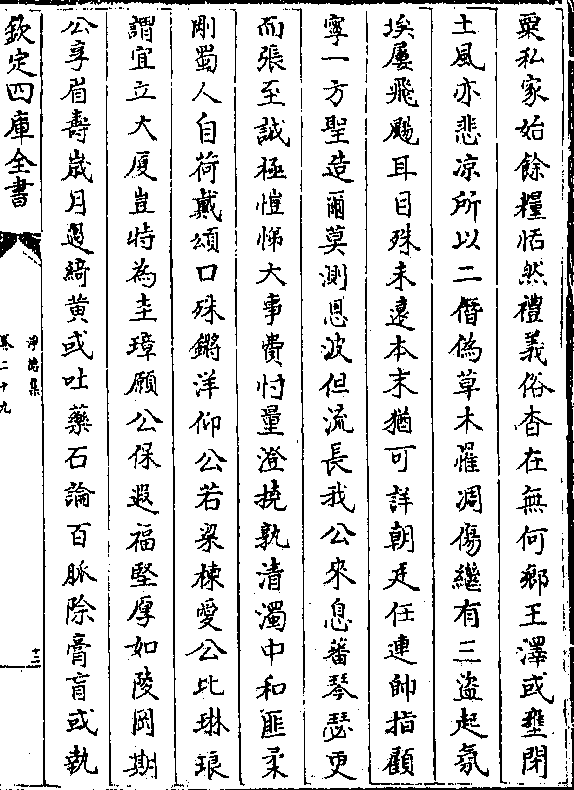 粟私家始餘糧恬然禮義俗杳在無何鄉王澤或壅閉
土風亦悲凉所以二僭偽草木罹凋傷繼有三盜起氛
埃屢飛颺耳目殊未遠本末猶可詳朝廷任連帥指顧
寧一方聖造爾莫測恩波但流長我公來息蕃琴瑟更
而張至誠極愷悌大事費忖量澄撓孰清濁中和匪柔
剛蜀人自荷戴頌口殊鏘洋仰公若梁棟愛公比琳琅
謂宜立大厦豈特為圭璋願公保遐福堅厚如陵岡期
公享眉壽歲月過綺黃或吐藥石論百脈除膏肓或執
欽定四庫全書
淨德集
卷二十九
十三